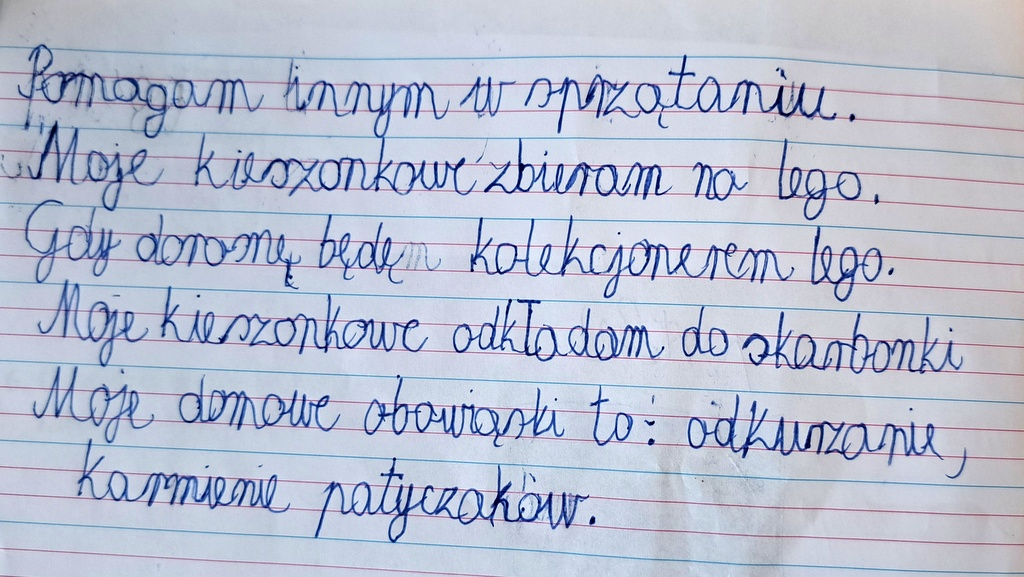 Pomagam innym w sprzątaniu.
Moje kieszonkowe zbieram na lego.
Gdy dorosnę będę kolekcjonerem lego.
Moje kieszonkowe odkładam do skarbonki
Moje domowe obowiąski to: odkurzanie,
karmienie patyczaków.